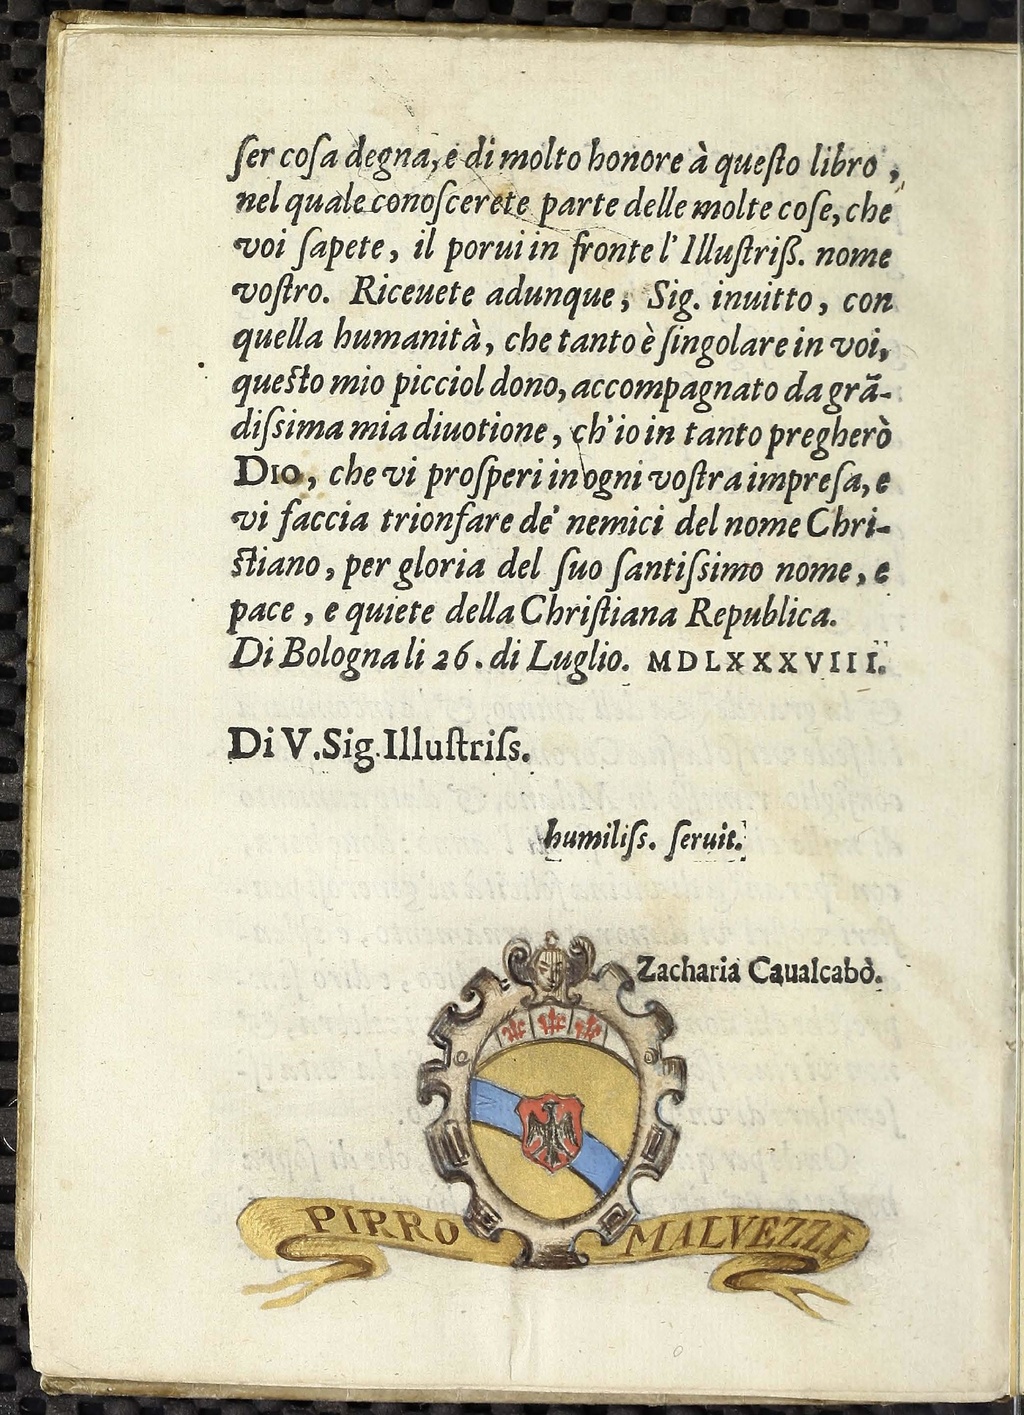 ſer coſa degna, e di molto honore à queſto libro,
nel quale conoſcerete parte delle molte coſe, che
voi ſapete, il porui in fronte l' Illuſtriß. nome
voſtro. Riceuete adunque, Sig. inuitto, con
quella humanità, che tanto è ſingolare in voi,
queſto mio picciol dono, accompagnato da grã-
diſsima mia diuotione, ch' io in tanto pregherò
DIO, che vi proſperi in ogni voſtra impreſa, e
vi faccia trionfare de' nemici del nome Chri-
ſtiano, per gloria del ſuo ſantiſsimo nome, e
pace, e quiete della Chriſtiana Republica.
Di Bologna li 26. di Luglio. MDLXXXVIII.
Di V. Sig. Illuſtriſs.
humiliſs. ſeruit.
Zacharia Caualcabò.
PIRRO MALVEZZI